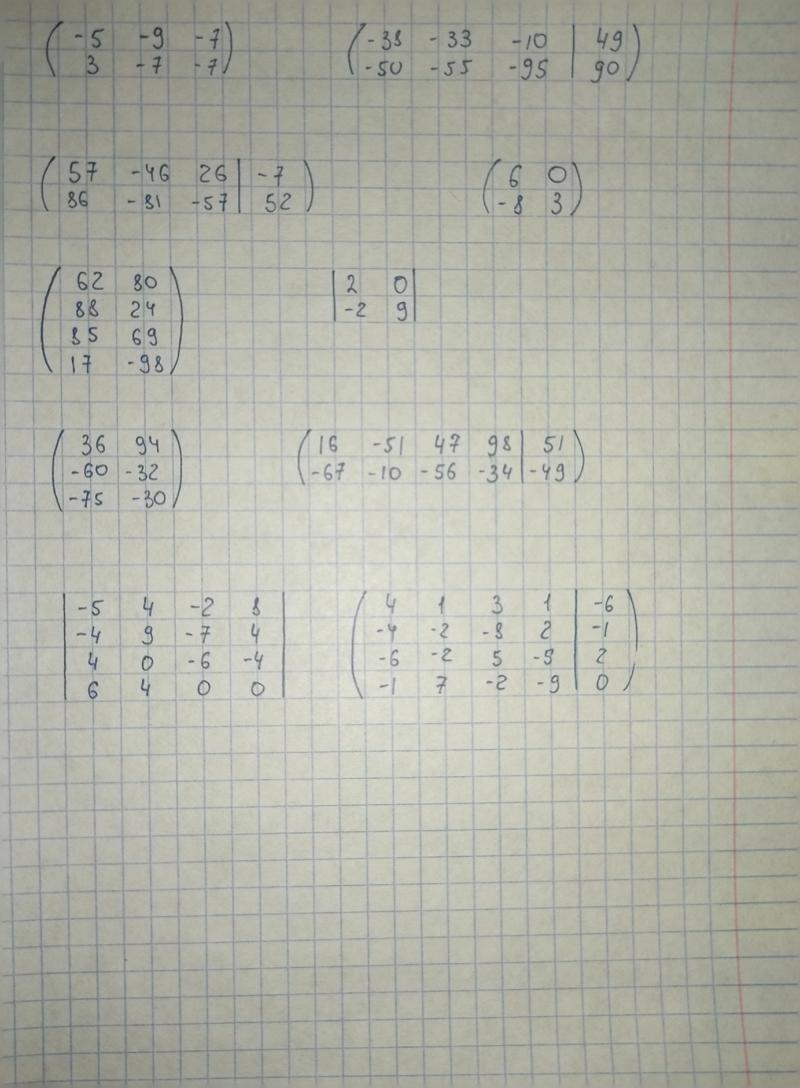 -5 -9 -7
3 -7 -7
-38 -33 -10 | 49
-50 -55 -95 | 90
57 -46 26 | -7
86 -81 -57 | 52
6 0
-8 3
62 80
88 24
85 69
17 -98
2 0
-2 9
36 94
-60 -32
-75 -30
16 -51 47 98 | 51
-67 -10 -56 -34 | -49
-5 4 -2 8
-4 9 -7 4
4 0 -6 -4
6 4 0 0
4 1 3 1 | -6
-2 -8 2 | -1
-6 -2 5 | 2
-1 7 -2 -9 | 0